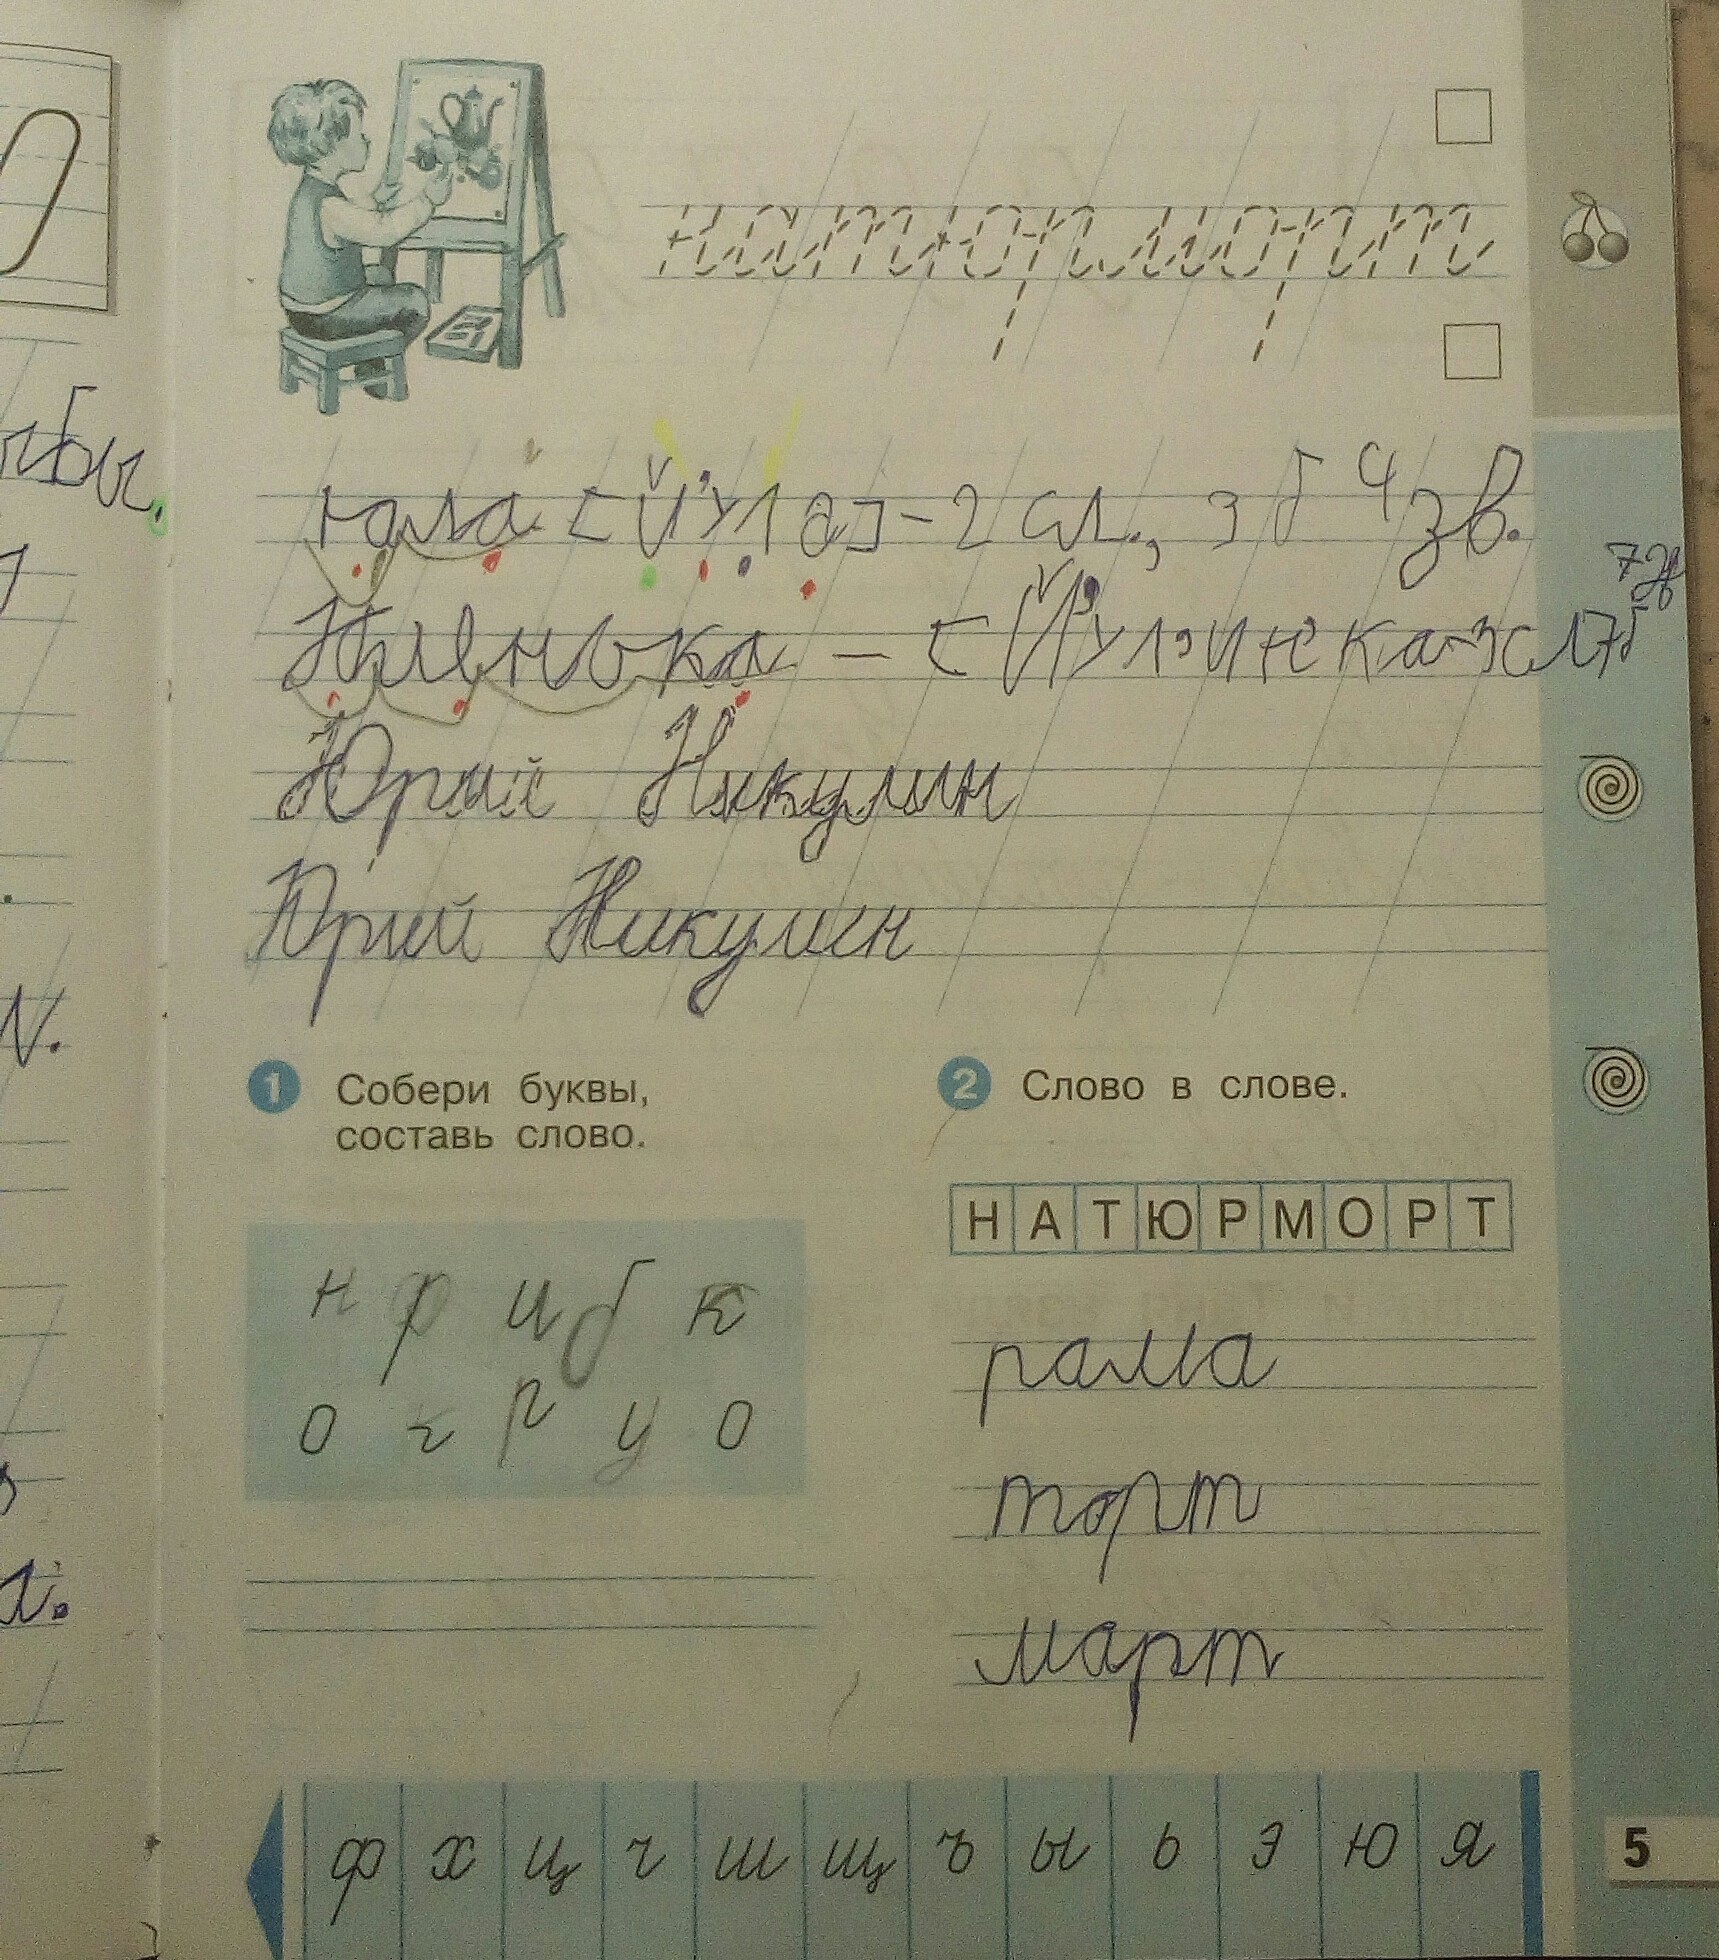 натюрморт
юла [й'ула] - 2 сл., 3 б 4 зв.
Юленька - [Й'улэинькa-3 сл 7 б
7
Юрий Никулин
Юрий Никулин
1 Собери буквы, составь слово.
2 Слово в слове.
НАТЮРМОРТ
н р и б к
о ч р у о
рама
торт
март
ф х ц ч ш щ ъ ы ь э ю я
5